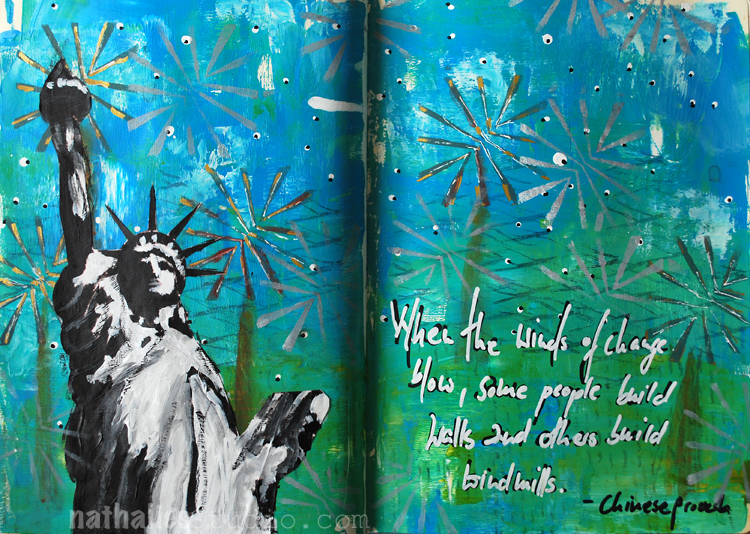 When the winds of change
blow, some people build
walls and others build
windmills.
- Chinese proverb
nathaliesstudio.com